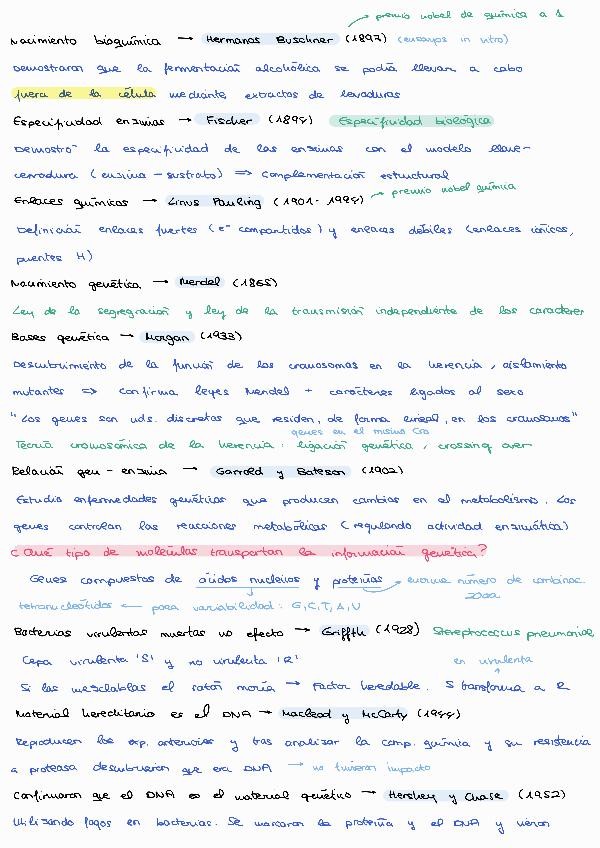 premio nobel de química a 1
Nacimiento bioquímica → Hermanos Buschner (1897) (ensayos in vitro)
Demostraron que la fermentación alcohólica se podía llevar a cabo
fuera de la célula mediante extractos de levaduras
Especifidad enzimas → Fischer (1898) Especifidad biológica
Demostró la especifidad de las enzimas con el modelo llave-
cerradura (enzima - sustrato) => Complementación estructural
Enlaces químicos → Linus Pauling (1901-1994) → premio nobel química
Definición enlaces fuertes (e⁻ compartidos) y enlaces débiles (enlaces iónicos,
puentes H)
Nacimiento genética → Mendel (1865)
Ley de la segregración y ley de la transmisión independiente de los caracteres
Bases genética → Morgan (1933)
Descubrimiento de la función de los cromosomas en la herencia, aislamiento
mutantes => Confirma leyes Mendel + carácteres ligados al sexo
"Los genes son uds. discretas que residen, de forma lineal, en los cromosomas"
genes en el mismo Cro
Teoría cromosómica de la herencia: ligación genética, crossing over
Relación gen - enzima → Garrold y Bateson (1902)
Estudio enfermedades genéticas que producen cambios en el metabolismo. Los
genes controlan las reacciones metabólicas (regulando actividad enzimática)
¿Qué tipo de moléculas transportan la información genética?
Genes compuestos de ácidos nucleicos y proteínas → enorme número de combinac.
20aa
tetranucleótidos ← poca variabilidad: G, C, T, A, U
Bacterias virulentas muertas no efecto → Griffth (1928) Stereptococcus pneumoniae
Cepa virulenta 'S' y no virulenta 'R'
en virulenta
Si las mezclablas el ratón moría → Factor heredable. S transforma a R
Material hereditario es el DNA → Macleod y McCarty (1944)
Reproducen los exp. anteriores y tras analizar la comp. química y su resistencia
a proteasa descubrieron que era DNA → no tuvieron impacto
Confirmaron que el DNA es el material genético → Hershey y Chase (1952)
Utilizando fagos en bacterias. Se marcaron la proteína y el DNA y vieron